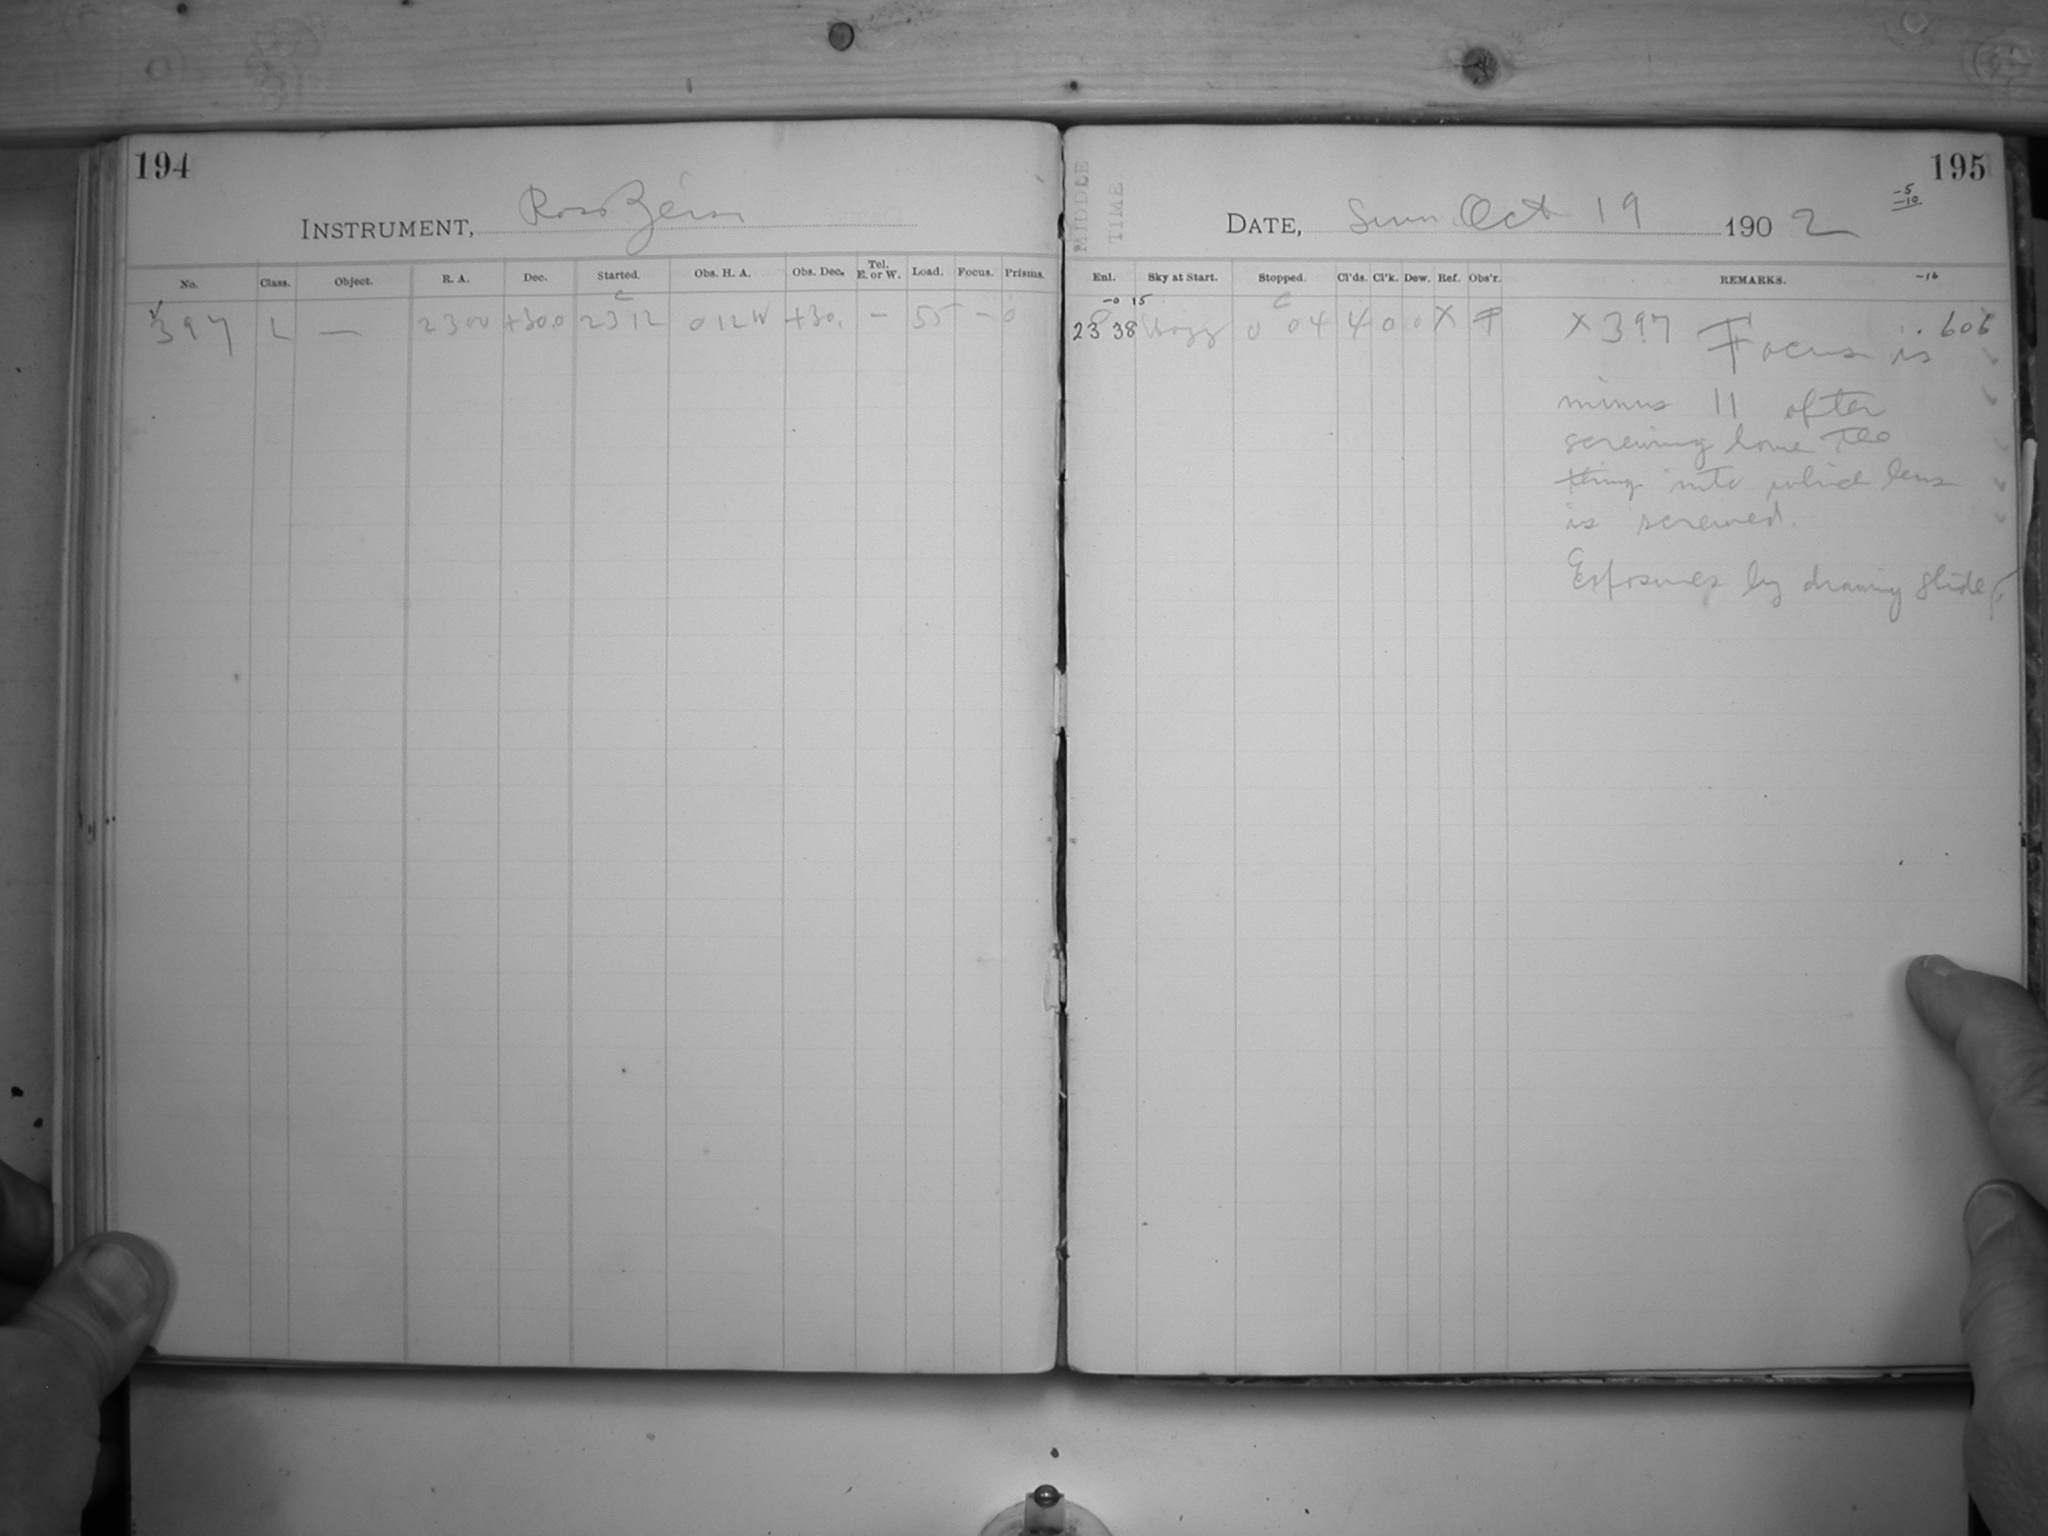 194
INSTRUMENT, Ross Zeiss
No. Class. Object. R. A. Dec. Started. Obs. H. A. Obs. Dec. Tel. E. or W. Load. Focus. Prisms.
c
397 L — 23 00 +30.0 23 12 0 12 W +30. – 55 – 0
MIDDLE
TIME
195
-5
-10
DATE, Sun Oct 19 1902
Enl. Sky at Start. Stopped. Cl'ds. Cl'k. Dew. Ref. Obs'r. REMARKS. -16
-0 15 c
23 38 Hazy 0 04 4 0 0 X F X 397 Focus is .606
minus 11 after
screwing home the
thing into which lens
is screwed.
Exposures by drawing slide